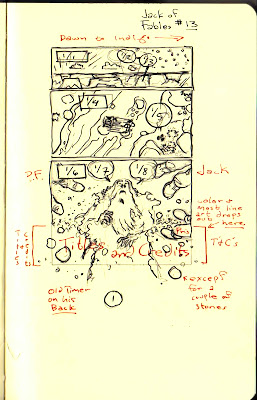 Jack of
Fables #13
Dawn to Indigo
1/1
1/2
1/3
1/4
1/5
P.F.
1/6
1/7
1/8
Jack
color &
most line
art drops
out here
Titles
Credits
Titles
and Credits
T&C's
Old Timer
on his
Back
1
except
for a
couple of
stones